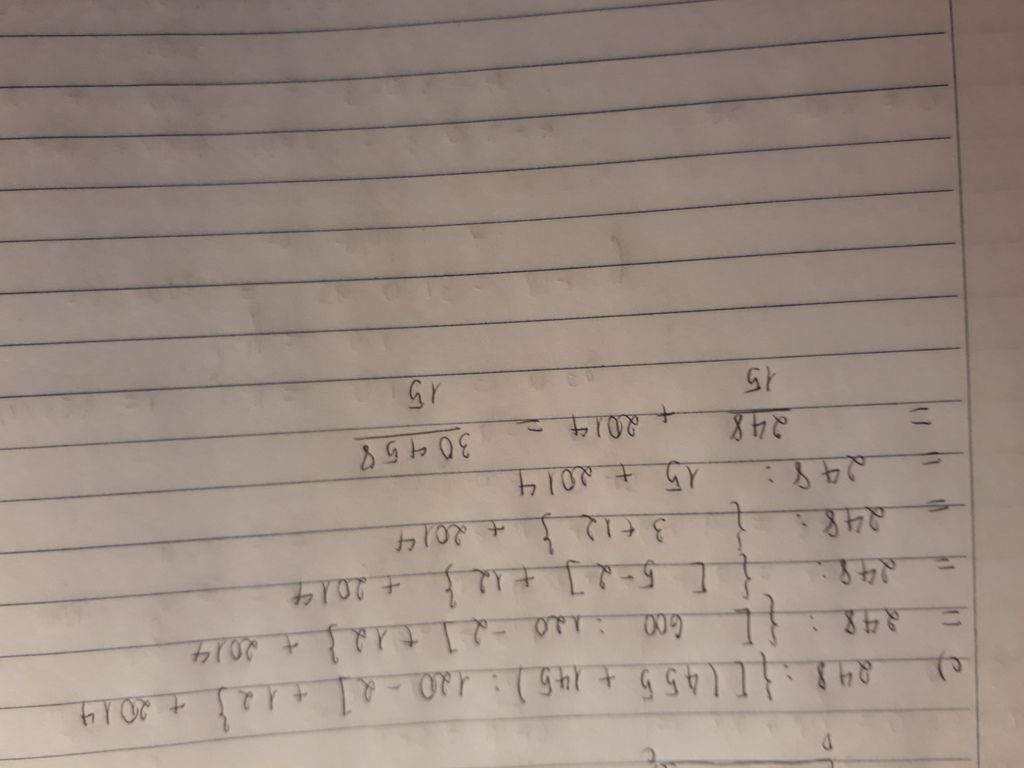 c) 248 : {[(455 + 145) : 120 - 2] + 12} + 2014
= 248 : {[ 600 : 120 - 2] + 12} + 2014
= 248 : {[ 5 - 2] + 12} + 2014
= 248 : { 3 + 12} + 2014
= 248 : 15 + 2014
= 248/15 + 2014 = 30458/15